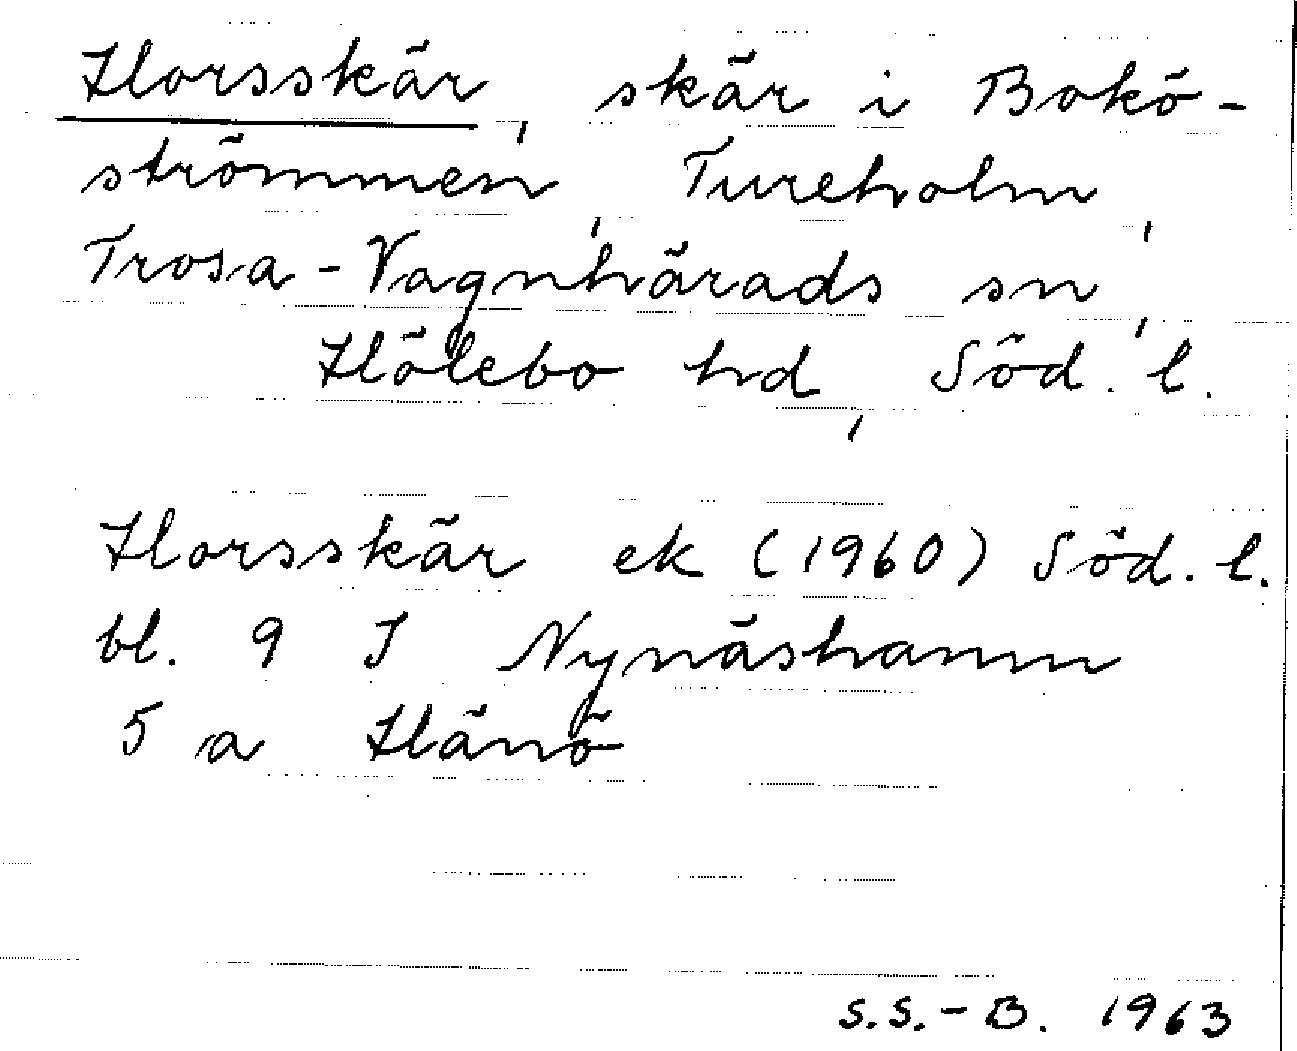 Horsskär, skär i Bokö-
strömmen, Tureholm,
Trosa-Vagnhärads sn,
Hölebo hd, Söd. l.
Horsskär ek (1960) Söd. l.
bl. 9 I Nynäshamn
5 a Hånö
S.S.-B. 1963